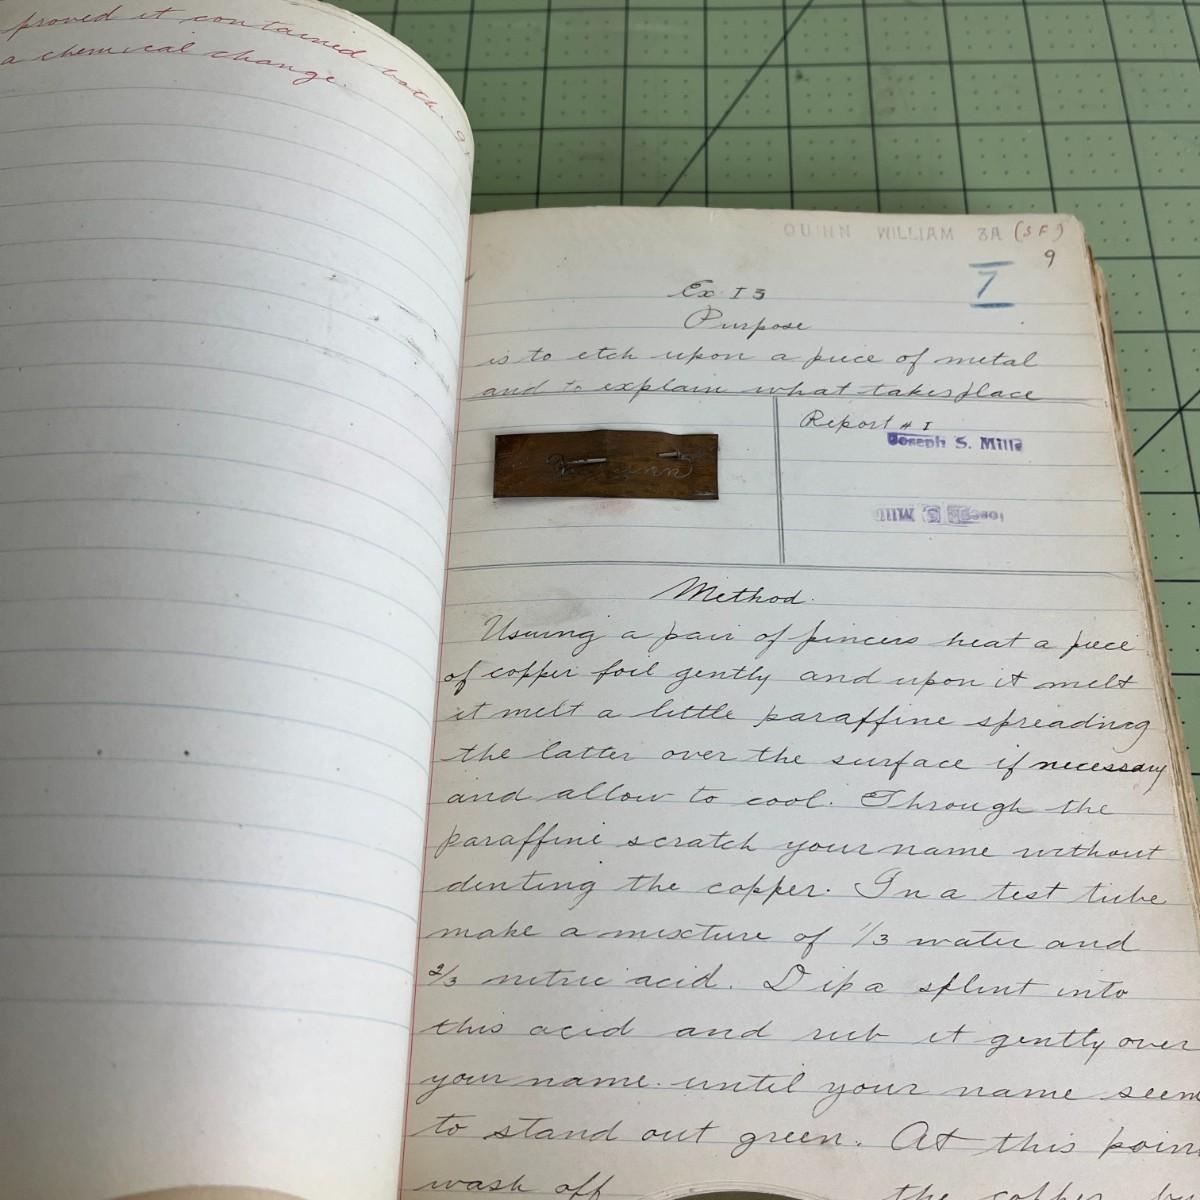 proved it contained both
a chemical change.
QUINN WILLIAM 3A (SF)
9
7
Ex I3
Purpose
is to etch upon a piece of metal
and to explain what takes place
Report # I
Joseph S. Mills
Joseph S. Mills
Quinn
Method.
Usuing a pair of pincers heat a piece
of copper foil gently and upon it melt
it melt a little paraffine spreading
the latter over the surface if necessary
and allow to cool. Through the
paraffine scratch your name without
dinting the copper. In a test tube
make a mixture of 1/3 water and
2/3 nitric acid. Dip a splint into
this acid and rub it gently over
your name until your name seem
to stand out green. At this poin
wash off the copper